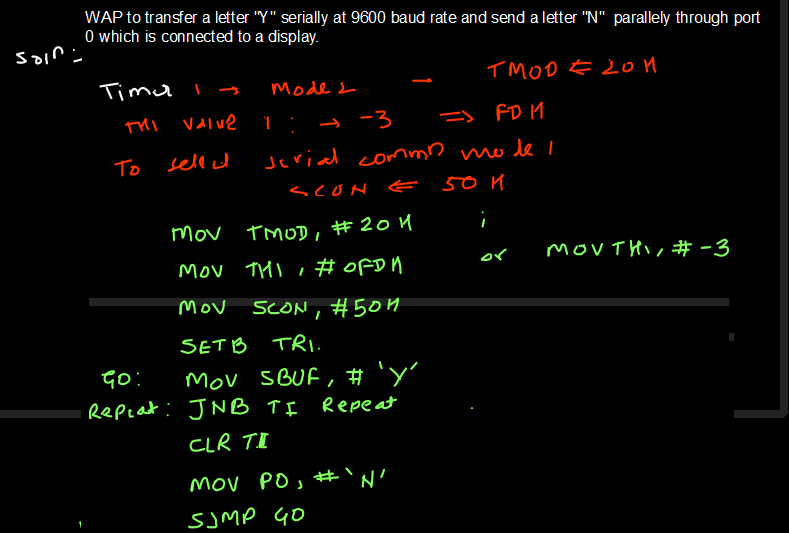 WAP to transfer a letter "Y" serially at 9600 baud rate and send a letter "N" parallely through port
0 which is connected to a display.
Soln:
Timer 1 → Mode 2 - TMOD ⇐ 20H
TH1 value 1 : → -3 => FDH
To select serial commn mode 1
SCON ⇐ 50H
MOV TMOD, #20H ;
MOV TH1, #0FDH or MOV TH1, #-3
MOV SCON, #50H
SETB TR1.
GO: MOV SBUF, #'Y'
Repeat: JNB TI Repeat
CLR TI
MOV P0, #'N'
SJMP GO